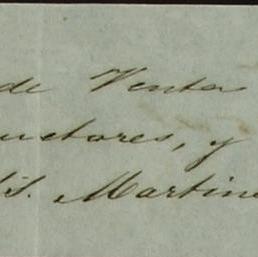 de Venta
uctores, y
S. Martine